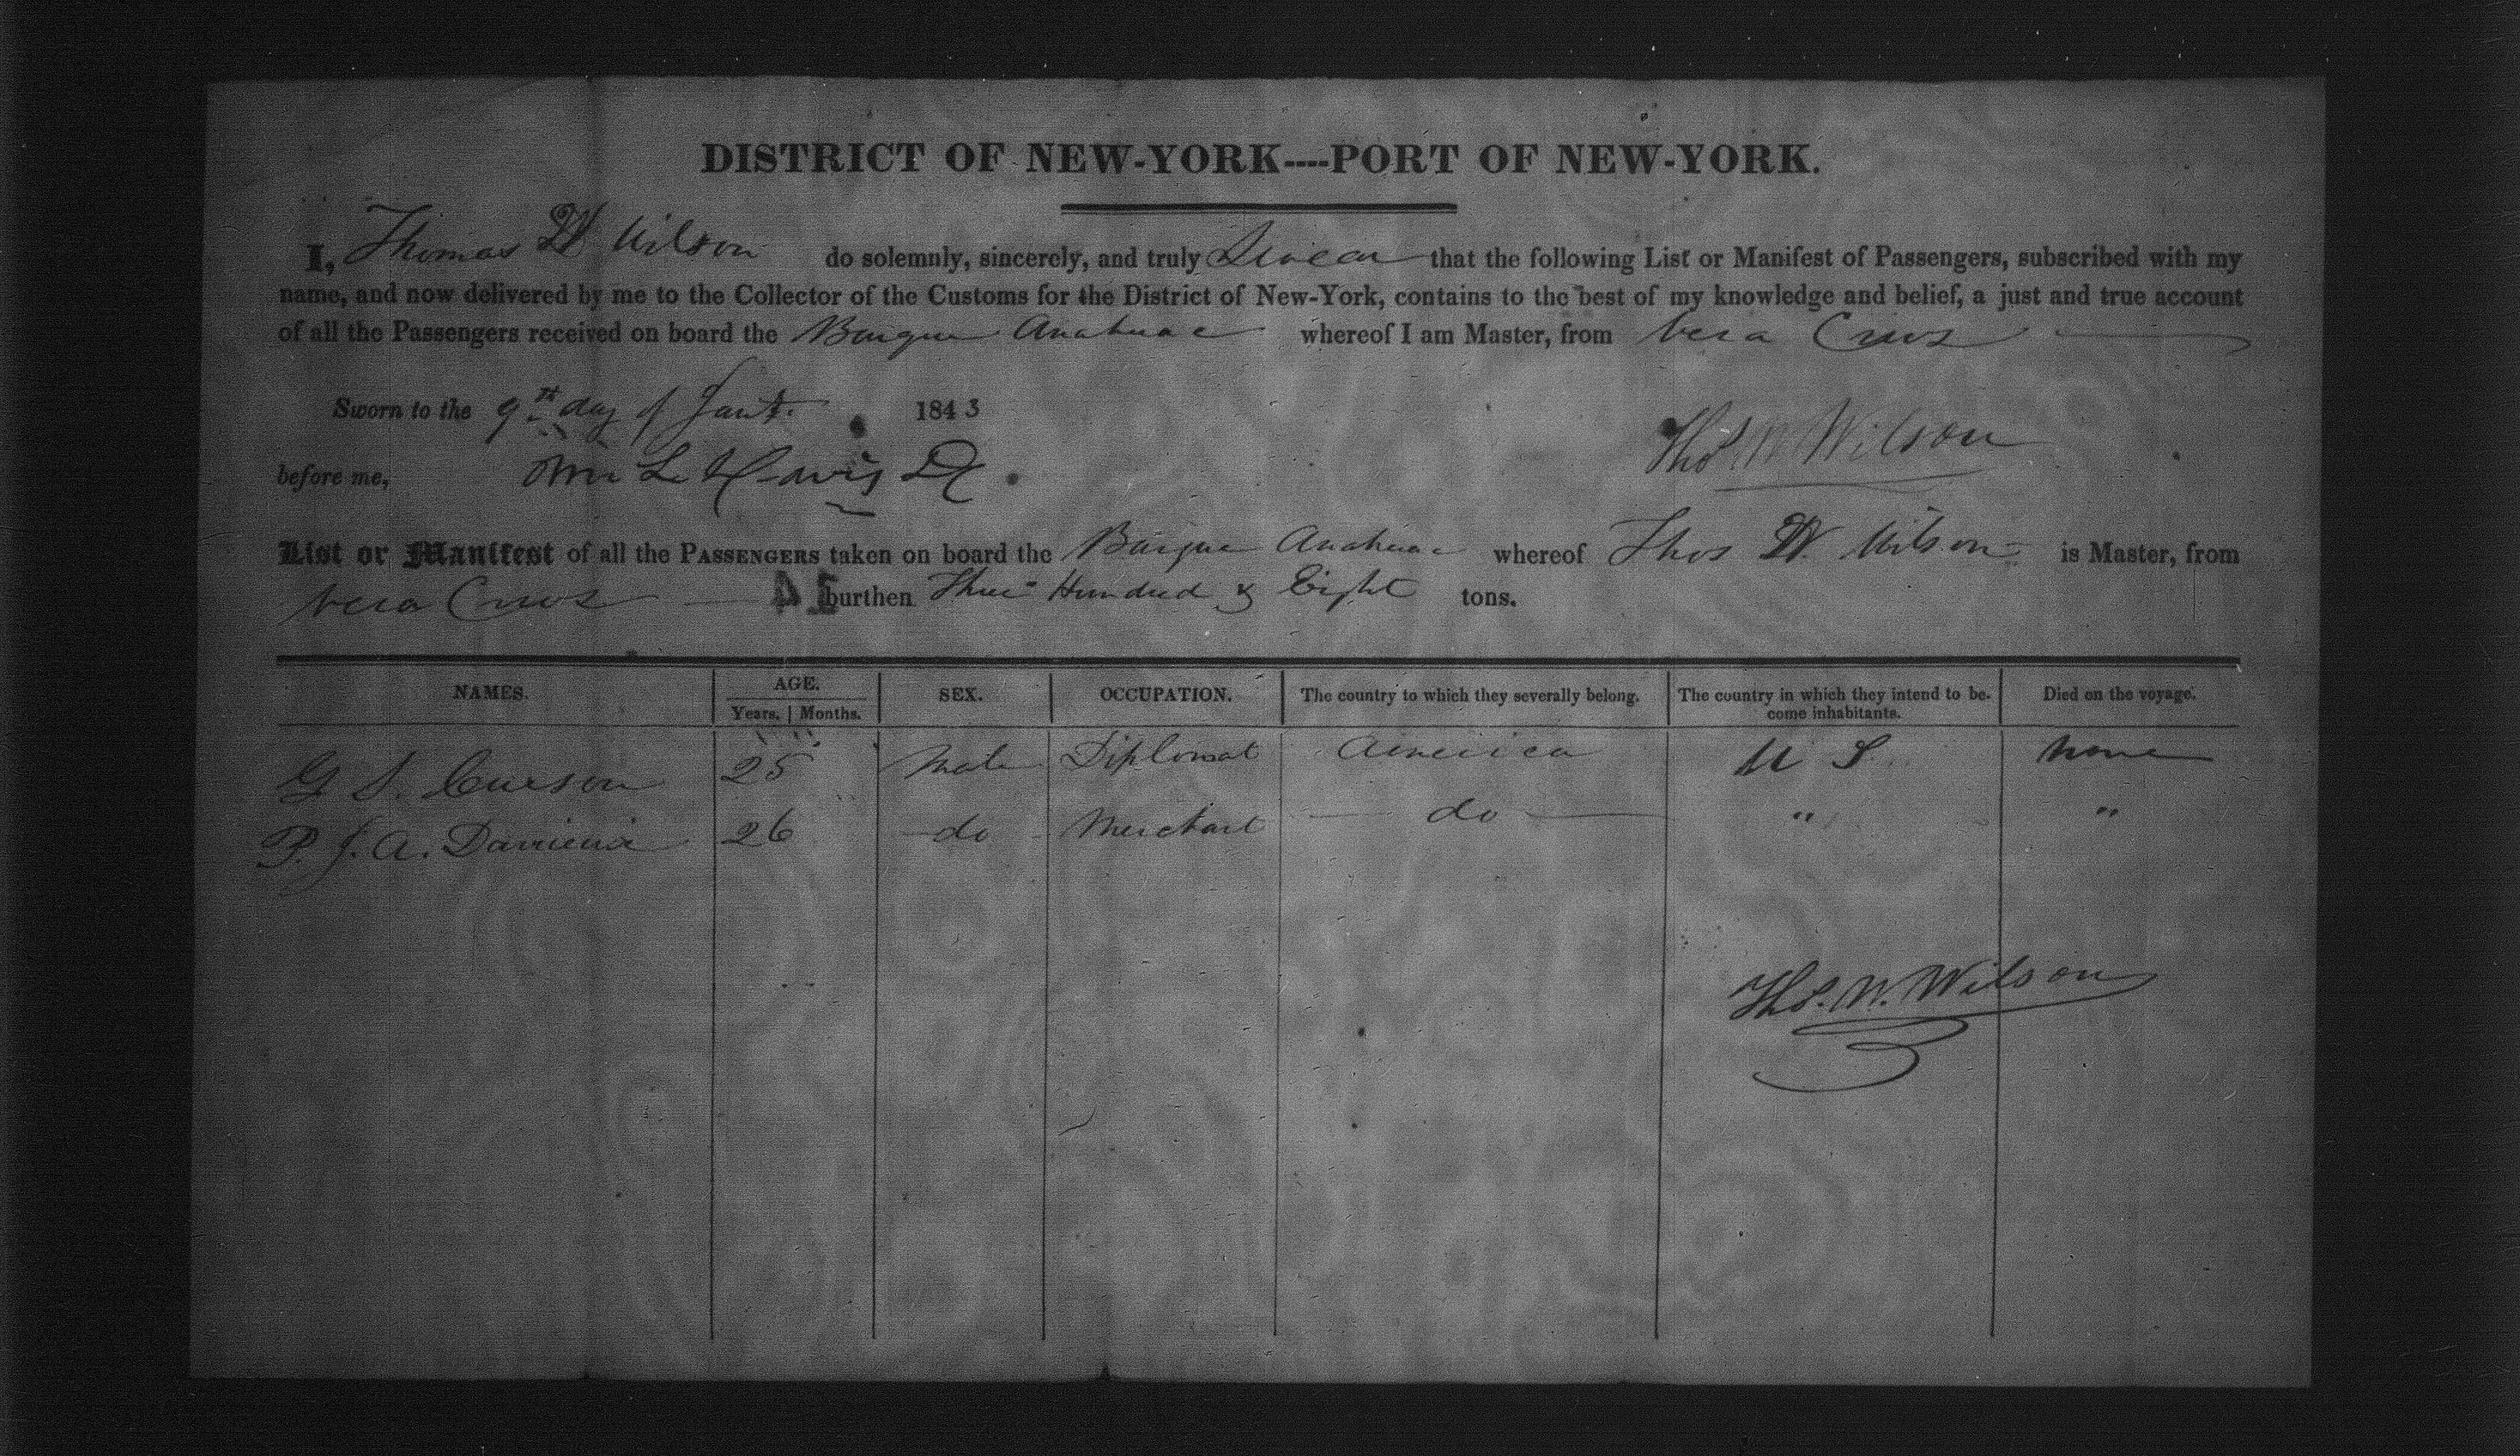 DISTRICT OF NEW-YORK----PORT OF NEW-YORK.
I, Thomas W Wilson do solemnly, sincerely, and truly Swear that the following List or Manifest of Passengers, subscribed with my
name, and now delivered by me to the Collector of the Customs for the District of New-York, contains to the best of my knowledge and belief, a just and true account
of all the Passengers received on board the Barque Anahuac whereof I am Master, from Vera Cruz
Sworn to the 9th day of 1843
Thos W Wilson
before me,
List or Manifest of all the PASSENGERS taken on board the Barque Anahuac whereof Thos W. Wilson is Master, from
Vera Cruz burthen Three Hundred & Eight tons.
NAMES. AGE. SEX. OCCUPATION. The country to which they severally belong. The country in which they intend to be- Died on the voyage.
Years. Months. come inhabitants.
G S. Curson 25 Male Diplomat America U S. None
P. J. A. 26 do Merchant do " "
Thos. W. Wilson